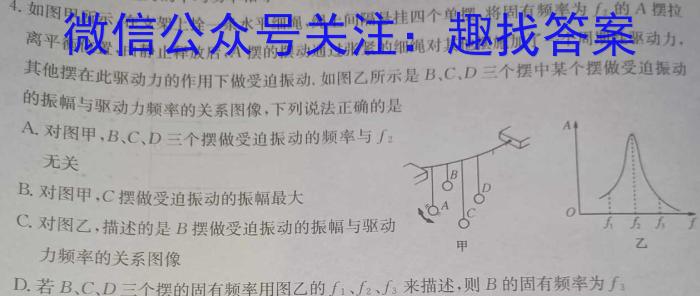 4. 如图甲所示
的 A 摆拉
微信公众号关注：趣找答案
离平
其他摆在此驱动力的作用下做受迫振动. 如图乙所示是 B、C、D 三个摆中某个摆做受迫振动
的振幅与驱动力频率的关系图像,下列说法正确的是
A. 对图甲,B、C、D 三个摆做受迫振动的频率与 f₂
无关
B. 对图甲,C 摆做受迫振动的振幅最大
C. 对图乙,描述的是 B 摆做受迫振动的振幅与驱动
力频率的关系图像
D. 若 B、C、D 三个摆的固有频率用图乙的 f₁、f₂、f₃ 来描述,则 B 的固有频率为 f₃
A
B
C
D
甲
A
O
f₁
f₂
f₃
f
乙